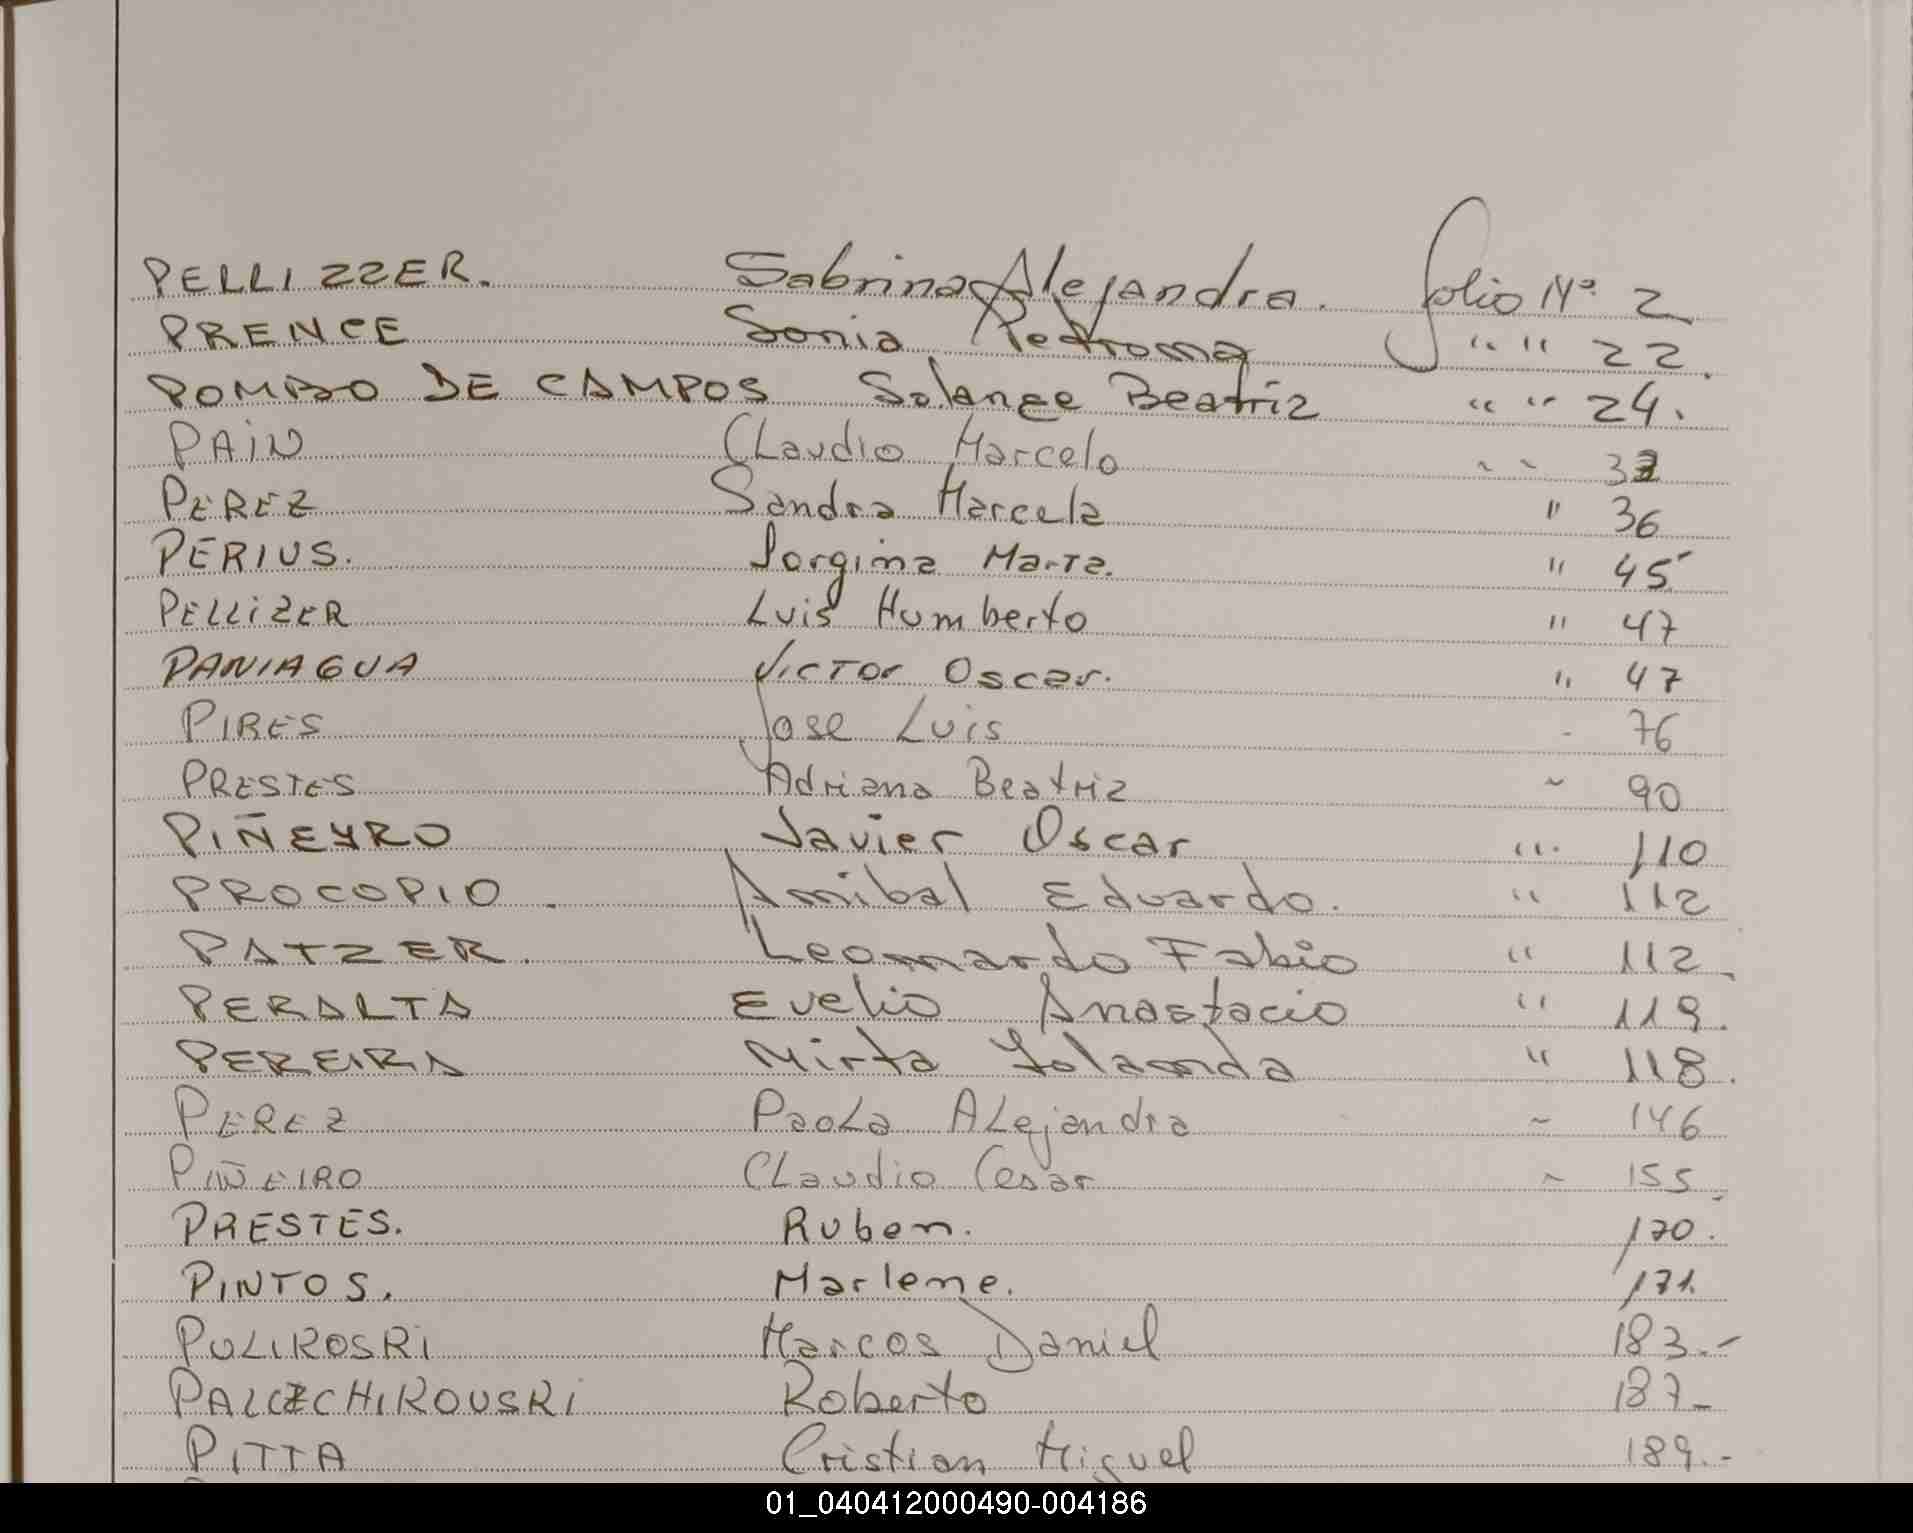 PELLIZZER. Sabrina Alejandra. folio Nº 2
PRENCE Sonia Petrona " " 22.
POMBO DE CAMPOS Solange Beatriz " " 24.
PAIN Claudio Marcelo " " 32
PEREZ Sandra Marcela " 36
PERIUS. Jorgina Marta. " 45
PELLIZER Luis Humberto " 47
PANIAGUA Victor Oscar. " 47
PIRES Jose Luis - 76
PRESTES Adriana Beatriz ~ 90
PIÑEYRO Javier Oscar " 110
PROCOPIO. Annibal Eduardo. " 112
PATZER. Leonardo Fabio " 112
PERALTA Evelio Anastacio " 119.
PEREIRA Mirta Yolanda " 118.
PEREZ Paola Alejandra ~ 146
PIÑEIRO Claudio Cesar ~ 155
PRESTES. Ruben. 170.
PINTOS. Marlene. 171.
PULIKOSKI Marcos Daniel 183.-
PALCZCHIKOUSKI Roberto 187-
PITTA Cristian Miguel 189.-
01_040412000490-004186